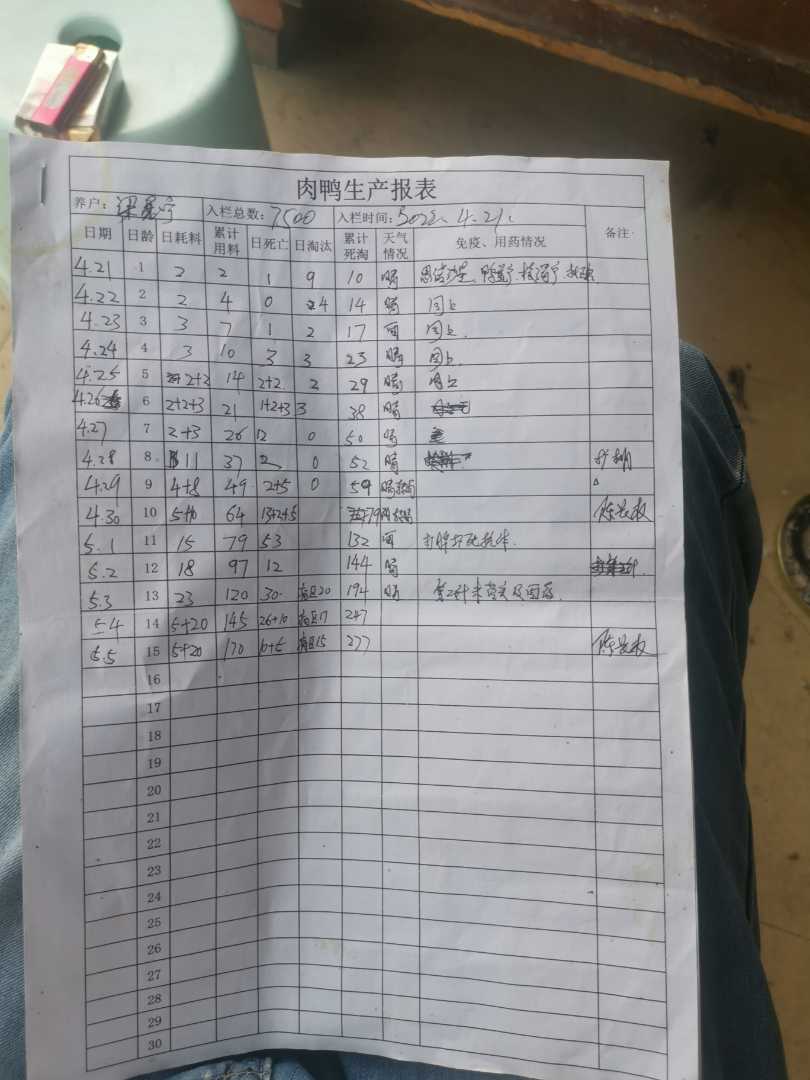 肉鸭生产报表
养户: 入栏总数:7500 入栏时间:5022. 4.21.
日期 日龄 日耗料 累计用料 日死亡 日淘汰 累计死淘 天气情况 免疫、用药情况 备注
4.21 1 2 2 1 9 10 晴
4.22 2 2 4 0 4 14 晴 同上
4.23 3 3 7 1 2 17 雨 同上
4.24 4 3 10 3 3 23 晴 同上
4.25 5 2+2 14 2+2 2 29 晴 同上
4.26 6 2+2+3 21 1+2+3 3 38 晴
4.27 7 2+3 26 12 0 50 晴
4.28 8 11 37 2 0 52 晴 扩棚
4.29 9 4+8 49 2+5 0 59
4.30 10 5+10 64 13+2+5 79
5.1 11 15 79 53 132 雨
5.2 12 18 97 12 144 晴
5.3 13 23 120 30 20 194 晴
5.4 14 5+20 145 26+10 17 247
5.5 15 5+20 170 15 277
16
17
18
19
20
21
22
23
24
25
26
27
28
29
30